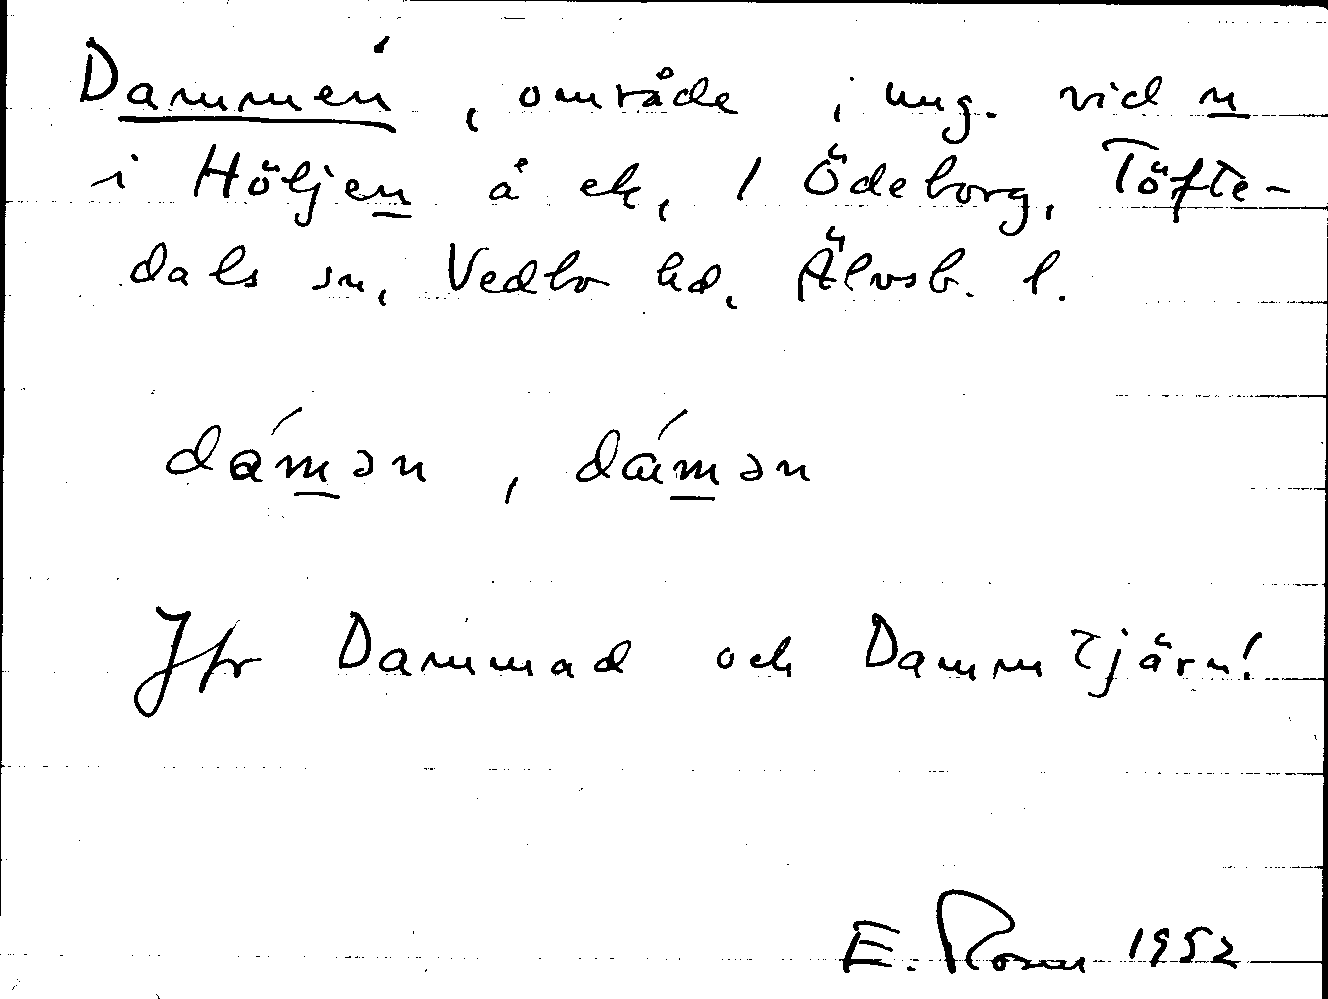 Dammen, område, ung. vid n
i Höljen å ek, 1 Ödeborg, Töfte-
dals sn, Vedbo hd, Älvsb. l.
dámən, dámən
Jfr Dammad och Dammtjärn!
E. Rosen 1952